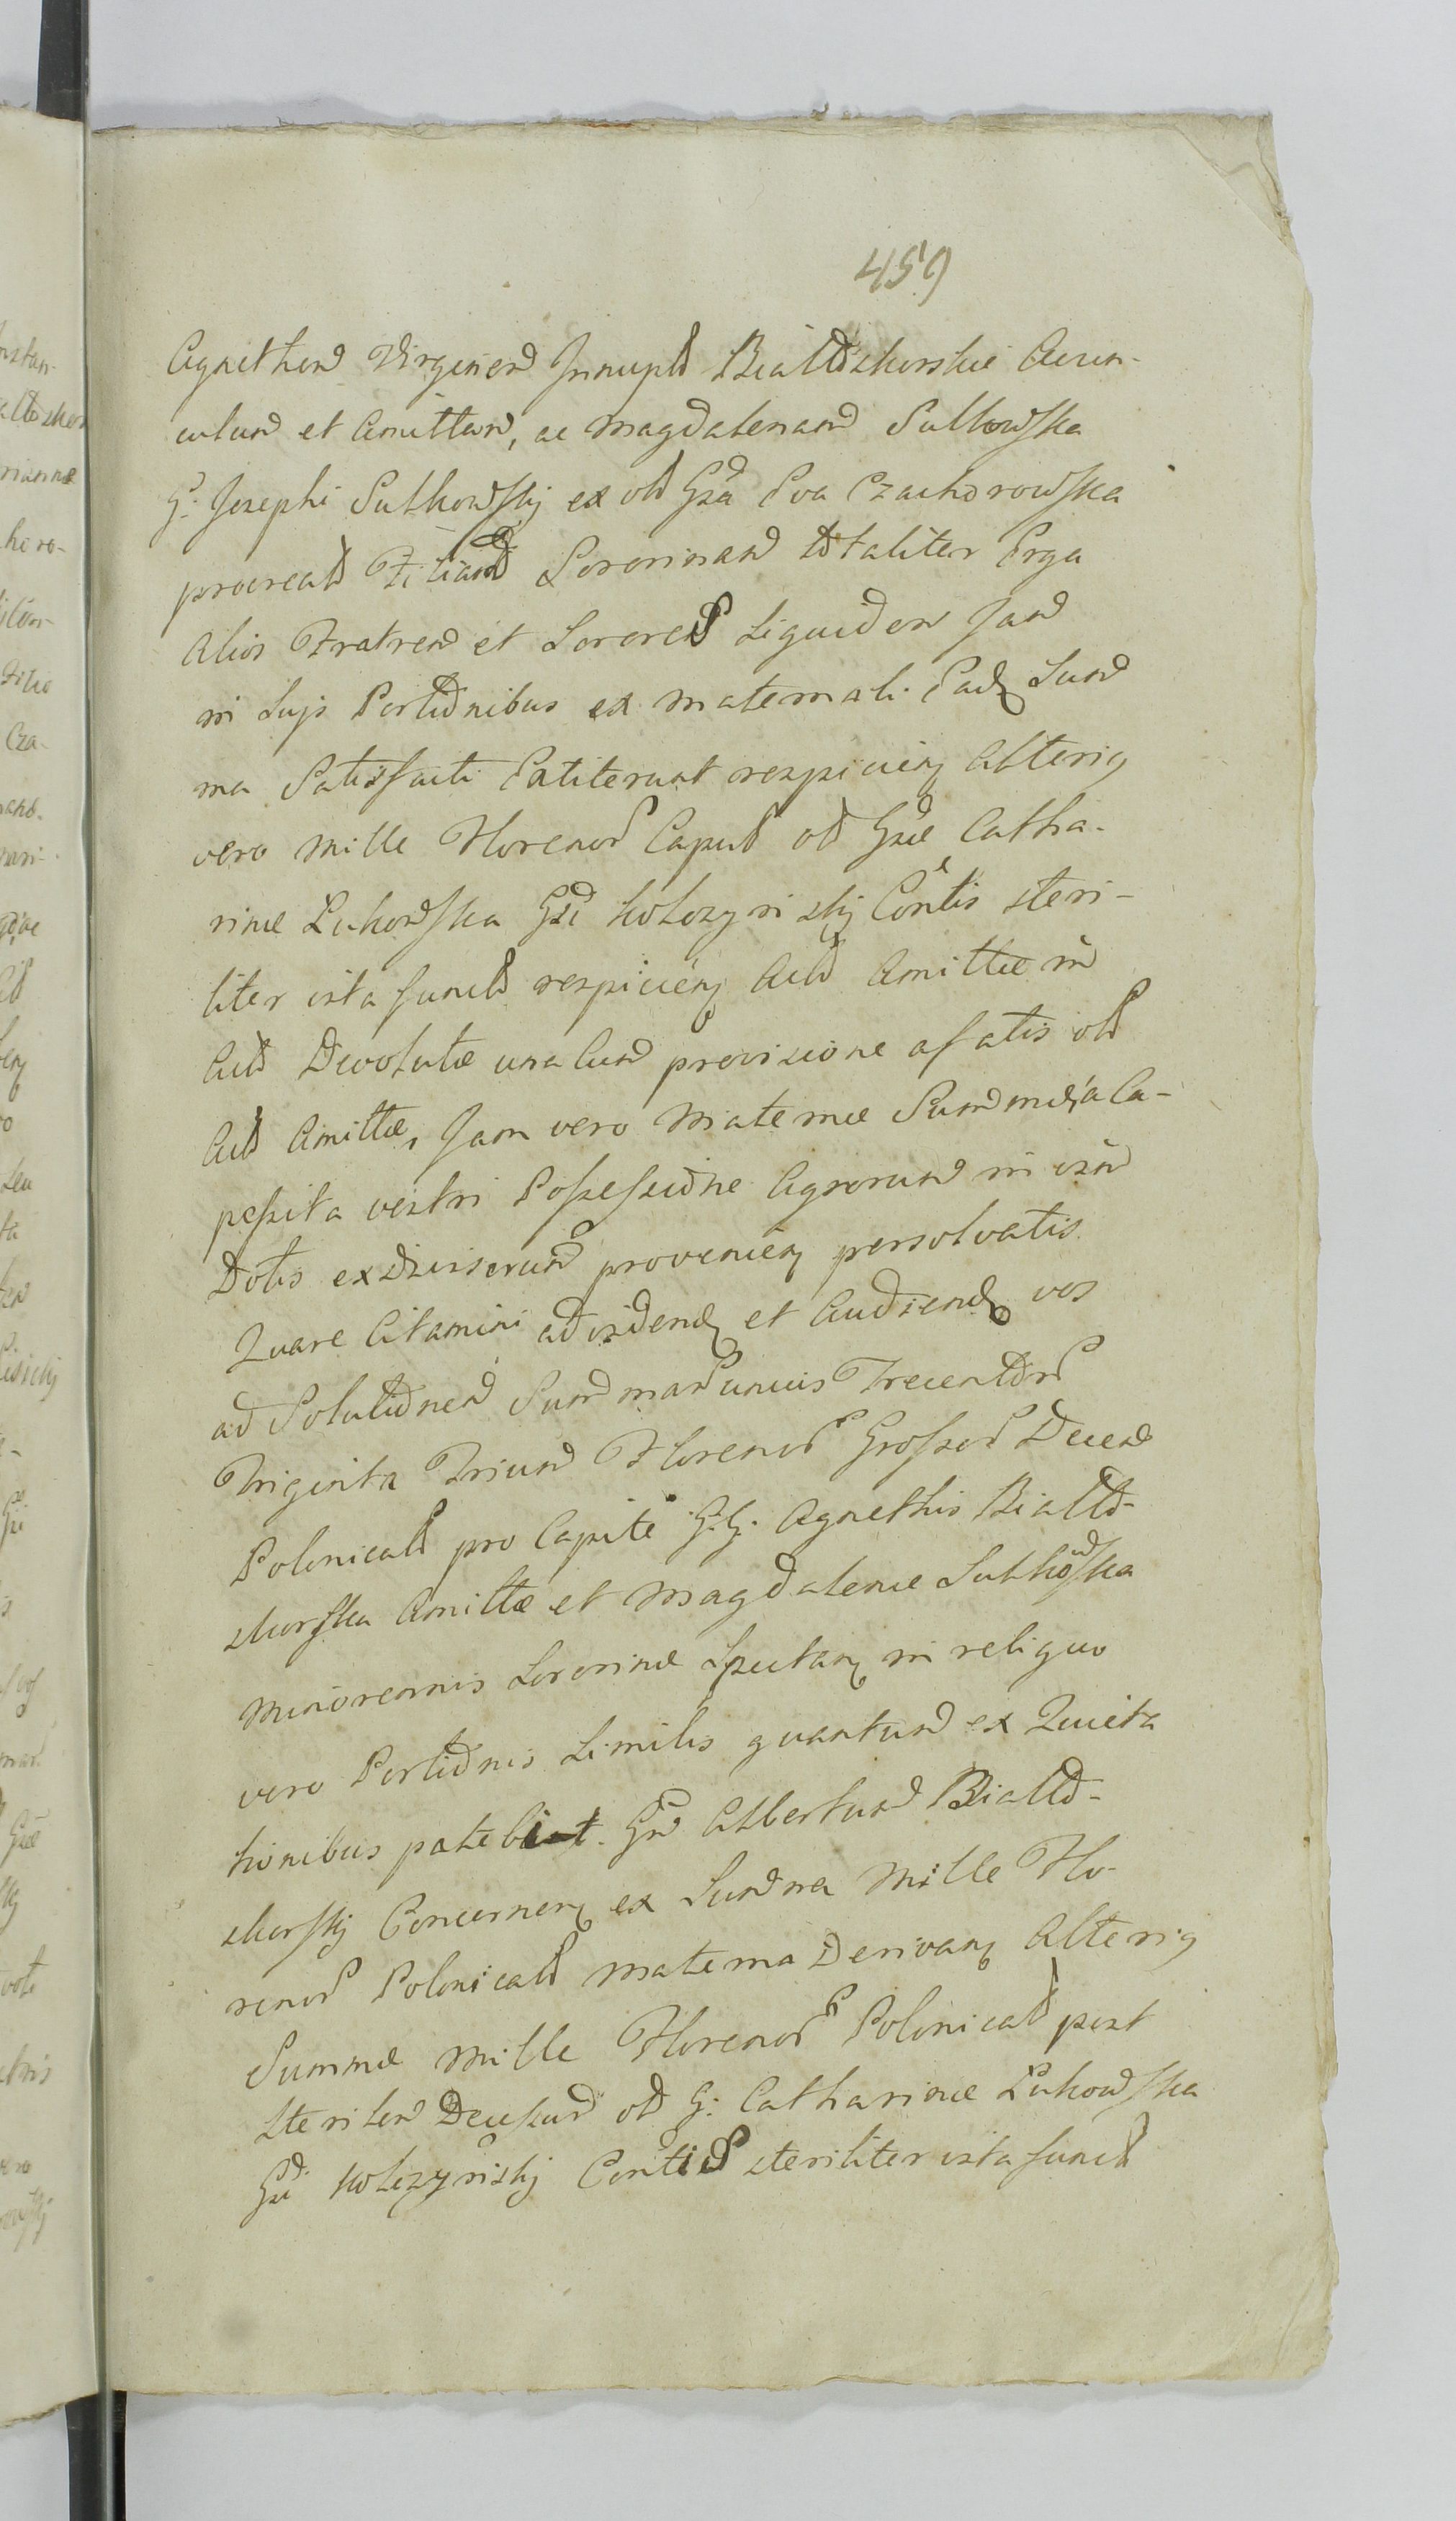 459
Agnethem Virginem Innupt Białłoskorskie Avun-
culum et Amittam, ac Magdalenam Sutkowska
G. Josephi Sutkowskij ex olt Gsa Eva Czachorowska
procreat Filiam Sororinam totaliter Erga
Alios Fratrem et Sorores Liquidem Jam
in Sujs Portionibus ex maternali Eadq Sum
ma Satisfacti Extiterunt respicienq Alteriq
vero mille Florenor Caput olt Gsae Catha-
rinae Lukowska Gsi Kolczynskij Contis steri-
liter ista funct respicienq Act Amittae in
Act Devolutae una Cum provisione afatis olt
Act Amittae, Jam vero Maternae Summae, a Ca-
pessita vestri Possessione Agrorum in vim
Dotis exdiviserum provenienq persolvatis.
Quare Citamini ad videndq et Audiendq vos
ad Solutionem Summar unius Trecentor
Triginta Trium Florenor Grossor Decem
Polonicalt pro Capite G.G. Agnethis Białło-
skorska Amittae et Magdalenae Sutkowska
Minorennis Sororinae Spectanq in reliquo
vero Portionis Similis quantum ex Quieta
tionibus patebit. Gm Albertum Białło-
skorskij Concernenq ex Summa Mille Flo-
renor Polonicalt materna Derivanq Alteriq
Summae mille Florenor Polonicalt post
sterilem Decessum olt G. Catharinae Lukowska
Gsi Kolczynskij Contis steriliter ista funct